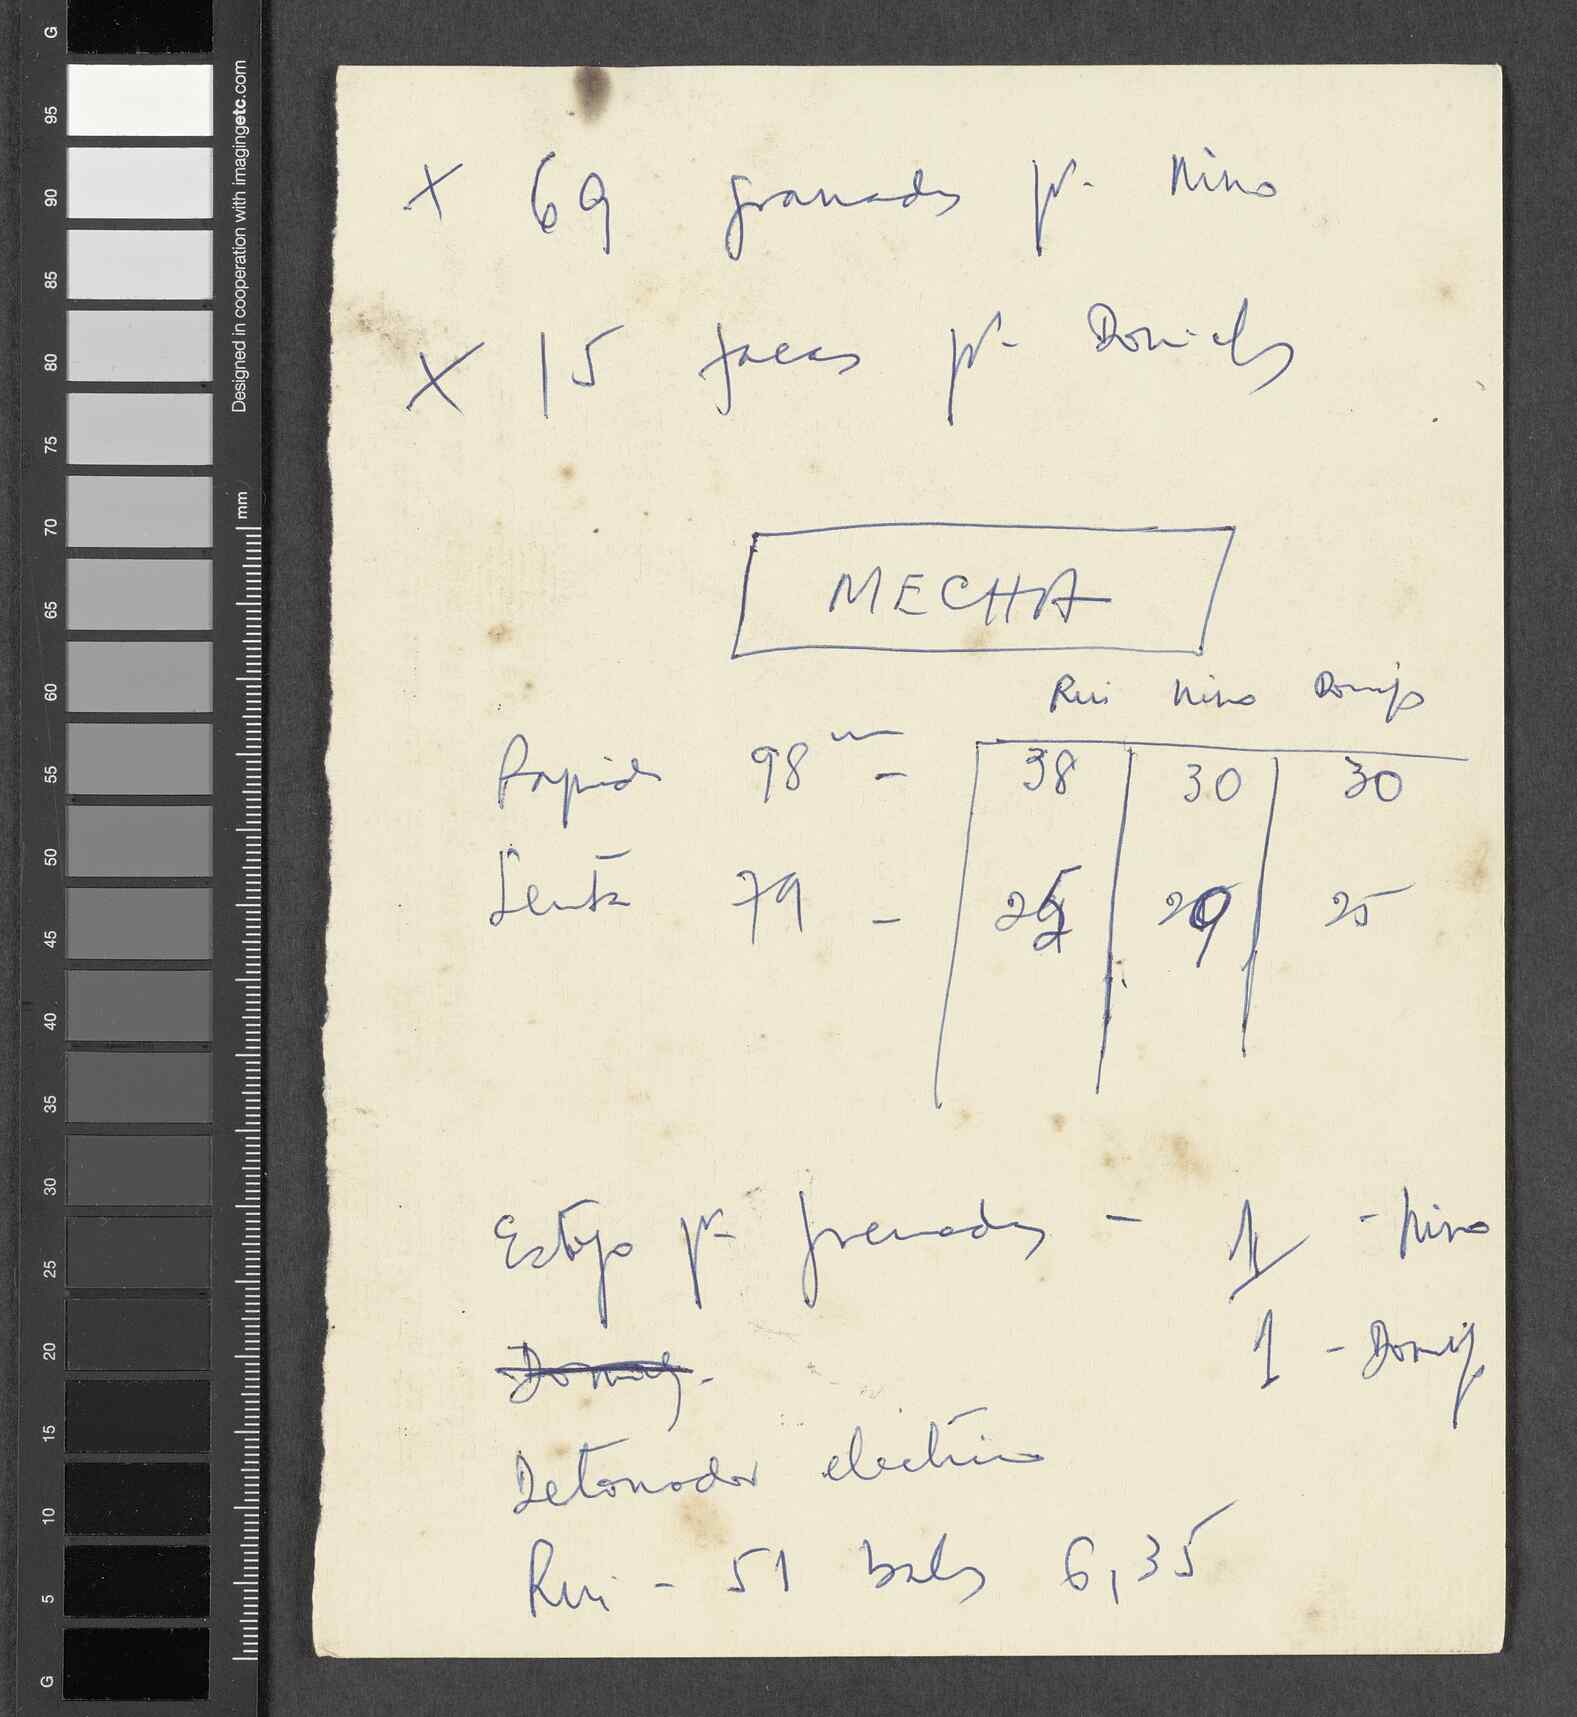 X 69 granadas pª. Nino
X 15 facas pª. Domingos
MECHA
Rui Nino Domingos
Rapida 98 m - 38 30 30
Lenta 79 - 25 29 25
Estojo pª granadas - 1 - Nino
1 - Domingos
Detonador electrico
Rui - 51 balas 6,35
G
95
90
85
80
75
70
65
60
55
50
45
40
35
30
25
20
15
10
5
G
Designed in cooperation with imagingetc.com
mm